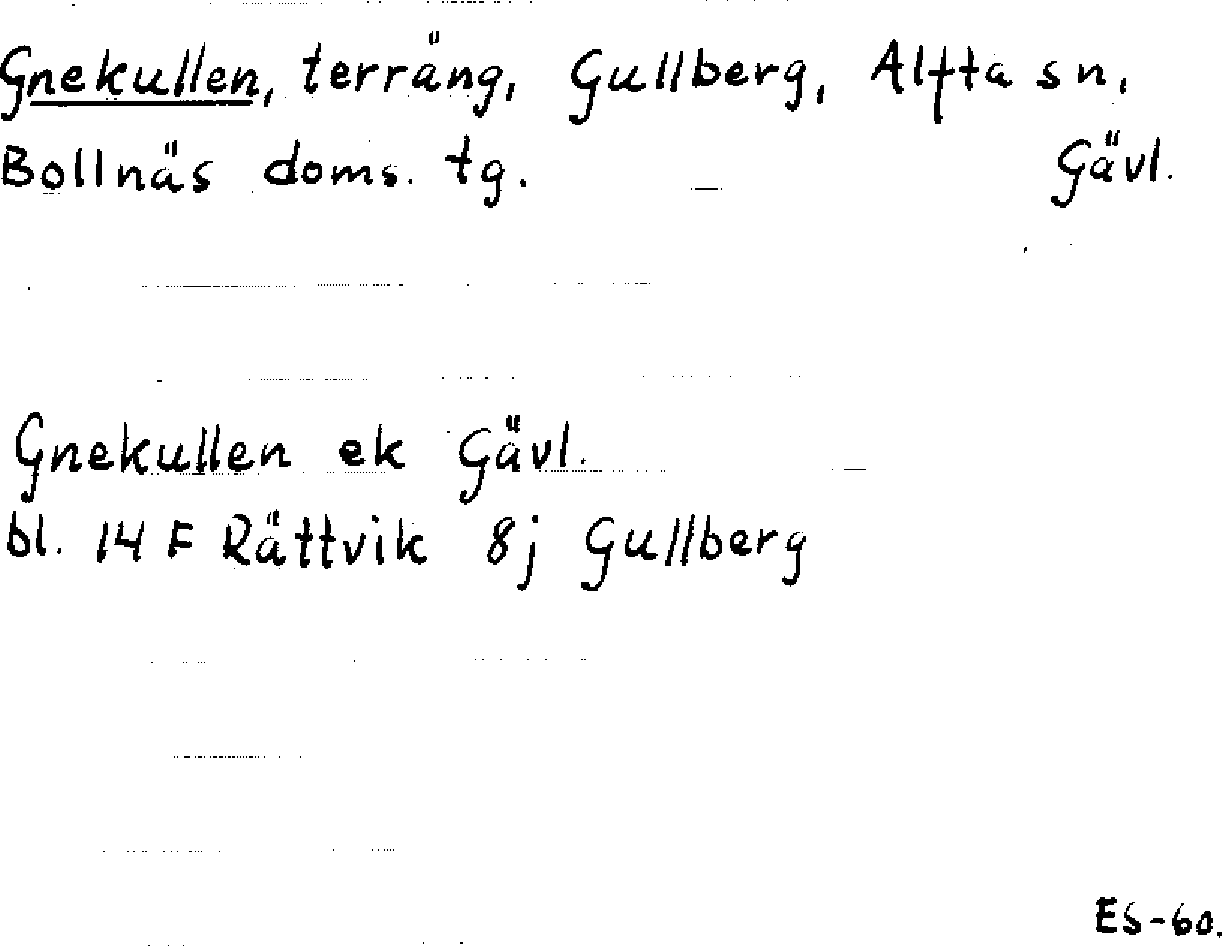 Gnekullen, terräng, Gullberg, Alfta sn,
Bollnäs doms. tg. Gävl.
Gnekullen ek Gävl.
bl. 14 F Rättvik 8j Gullberg
ES-60.